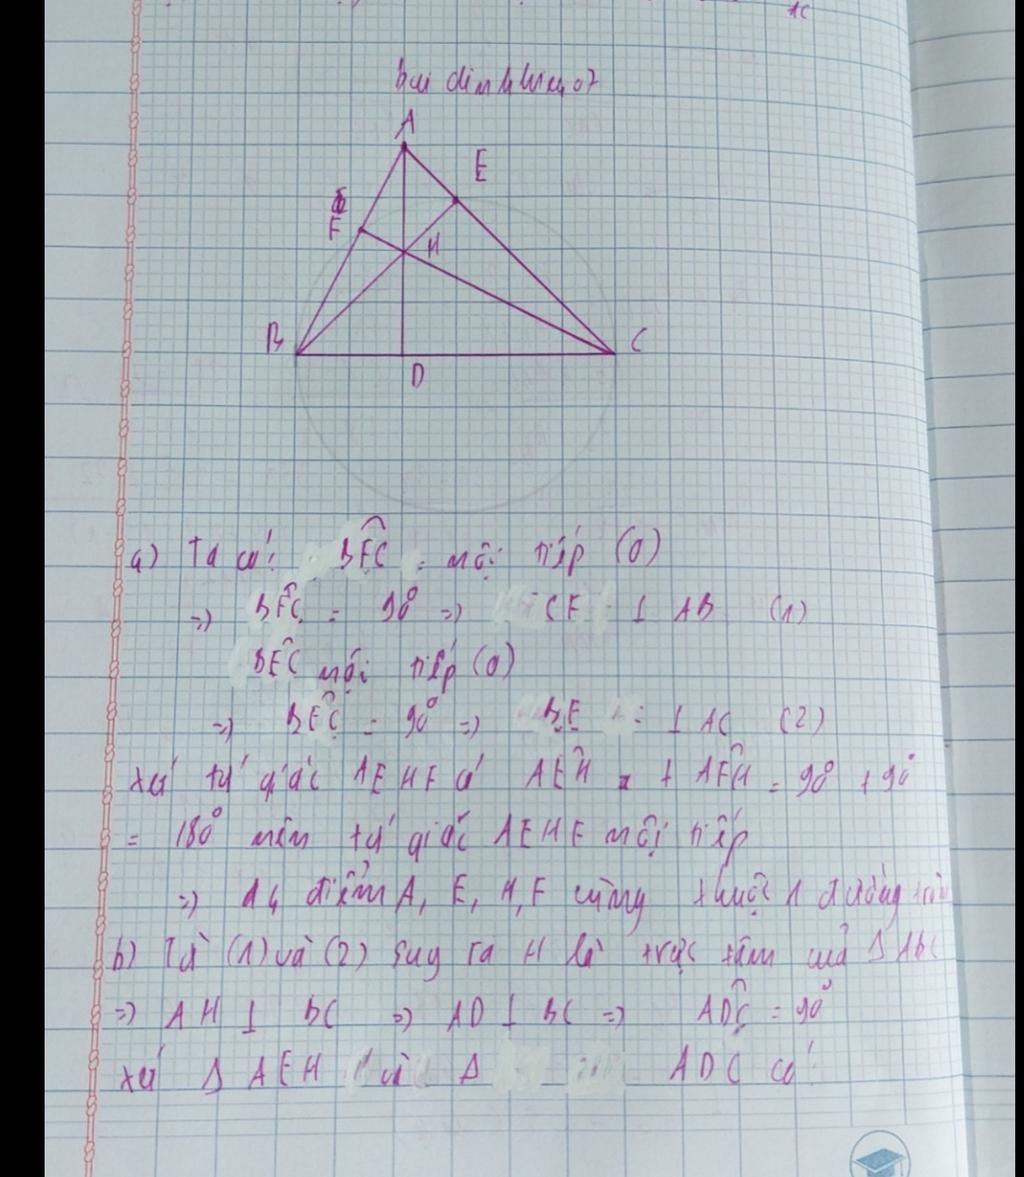 1C
A
E
F
H
B
C
D
a) Ta có: BFC nội tiếp (O)
=> BFC = 90° => CF ⊥ AB (1)
BEC nội tiếp (O)
=> BEC = 90° => BE ⊥ AC (2)
xét tứ giác AEHF có AEH + AFH = 90° + 90°
= 180° nên tứ giác AEHF nội tiếp
=> 4 điểm A, E, H, F cùng thuộc 1 đường tròn
b) Từ (1) và (2) suy ra H là trực tâm của Δ ABC
=> AH ⊥ BC => AD ⊥ BC => ADC = 90°
xét Δ AEH và Δ ADC có: